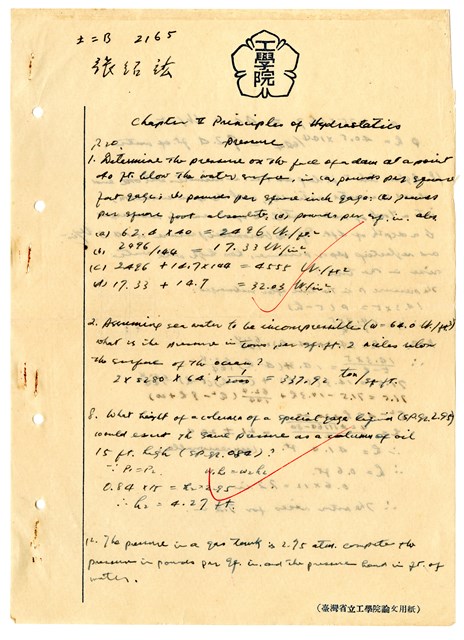 土二B 2165
張紹
工學院
Chapter II Principles of Hydrostatics
P. 20. Pressure
1. Determine the pressure on the face of a dam at a point
40 ft. below the water surface, in (a) pounds per square
foot gage; (b) pounds per square inch gage; (c) pounds
per square foot absolute, (d) pounds per sq. in. abs
(a) 62.4 x 40 = 2496 lb/ft²
(b) 2496/144 = 17.33 lb/in²
(c) 2496 + 14.7x144 = 4555 lb/ft²
(d) 17.33 + 14.7 = 32.03 lb/in²
2. Assuming sea water to be incompressible (w = 64.0 lb/ft³)
what is the pressure in tons per sq. ft. 2 miles below
the surface of the ocean?
2 x 5280 x 64 x 1/2000 = 337.92 ton/sq.ft.
8. What height of a column of a special gage liquid (sp.gr. 2.95)
would exert the same pressure as a column of oil
15 ft. high (sp.gr. 0.84)?
∵ P₁=P₂ w₁h₁ = w₂h₂
0.84 x 15 = h₂ x 2.95
∴ h₂ = 4.27 ft.
12. The pressure in a gas tank is 2.75 atm. compute the
pressure in pounds per sq. in. and the pressure head in ft. of
water.
(臺灣省立工學院論文用紙)